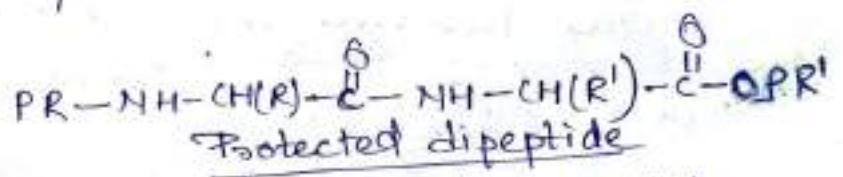 O O
PR-NH-CH(R)-C-NH-CH(R')-C-OPR'
Protected dipeptide